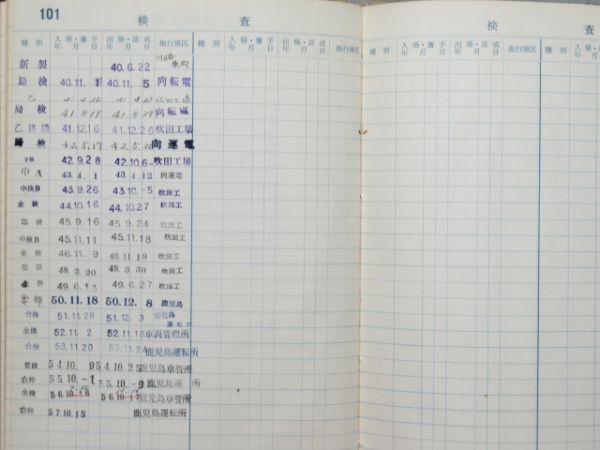 101
検 査
検 査
種別 入場・着手 年月日 出場・落成 年月日 施行場区 種別 入場・着手 年月日 出場・落成 年月日 施行場区
入場・着手 年月日 出場・落成 年月日 施行場区 種別 入場・着手 年月日
新製 40.6.22 川崎
局検 40.11.1 40.11.5 向転電
乙
局検 41.8. 41.8. 向転電
乙 41.12.16 41.12.26 吹田工場
局検 42.5. 42.5. 向運電
全検 42.9.28 42.10.6 吹田工場
中A 43.4.1 43.4.12 向運電
中検B 43.9.26 43.10.-5 吹田工
全検 44.10.16 44.10.27 吹田工
臨検 45.9.16 45.9.24 吹田工
中検B 45.11.11 45.11.18 吹田工
全検 46.11.9 46.11.19 吹田工
48.3.20 48.3.30 吹田工
全検 49.6.13 49.6.27 吹田工
要部 50.11.18 50.12.8 鹿児島
台検 51.11.29 51.12.3 鹿児島
全検 52.11.2 52.11. 車両管理所
台検 53.11.20 53.11.24 鹿児島運転所
要検 54.10.9 54.10.25 鹿児島車管所
台検 55.10.-1 55.10.-9 鹿児島運 所
全検 56.10.16 56.10.17 鹿児島車管所
台検 57.10.15 鹿児島運転所